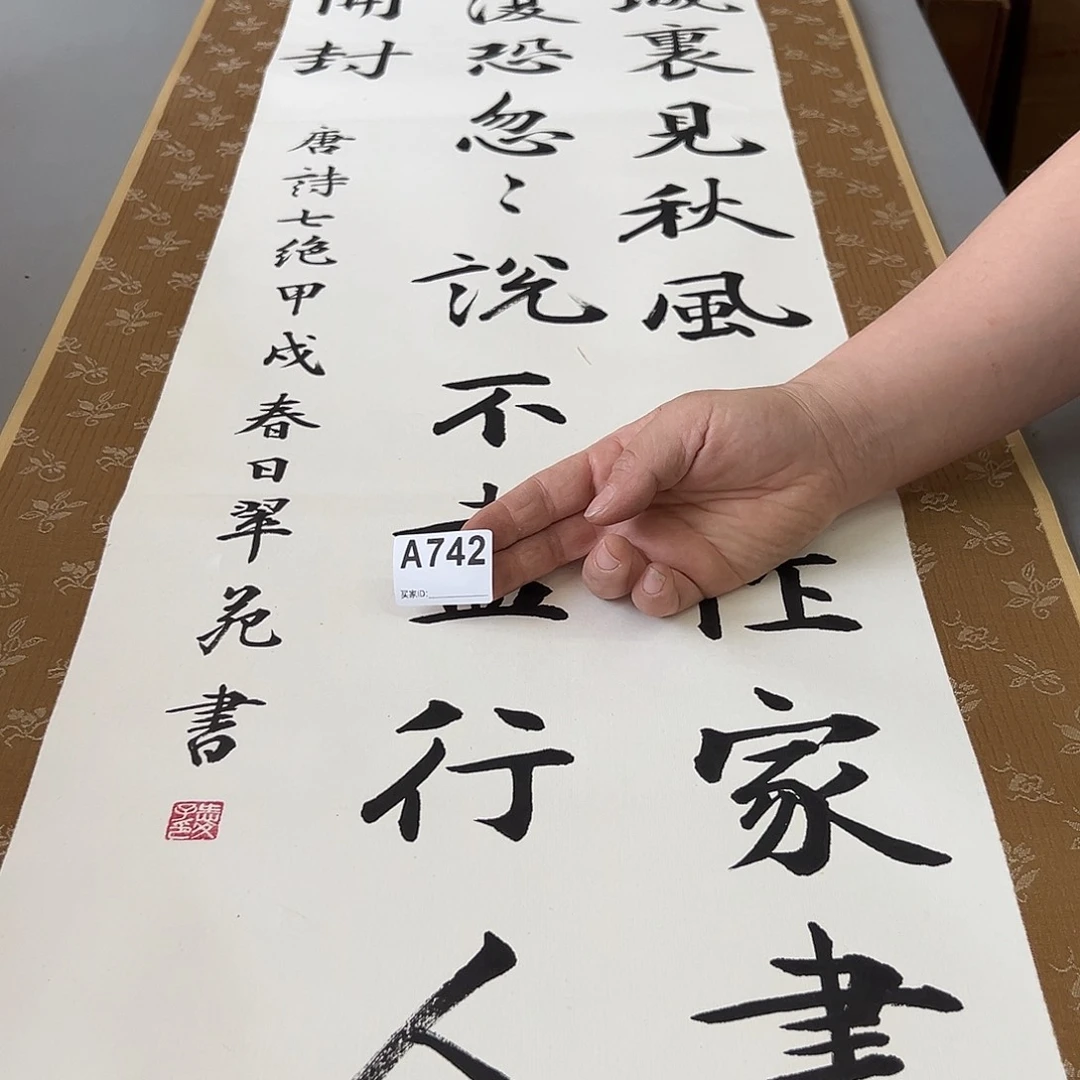 城裏見秋風作家書
復恐忽〻說不盡行人
開封
唐詩七绝甲戌春日翠苑書
A742
买家ID: